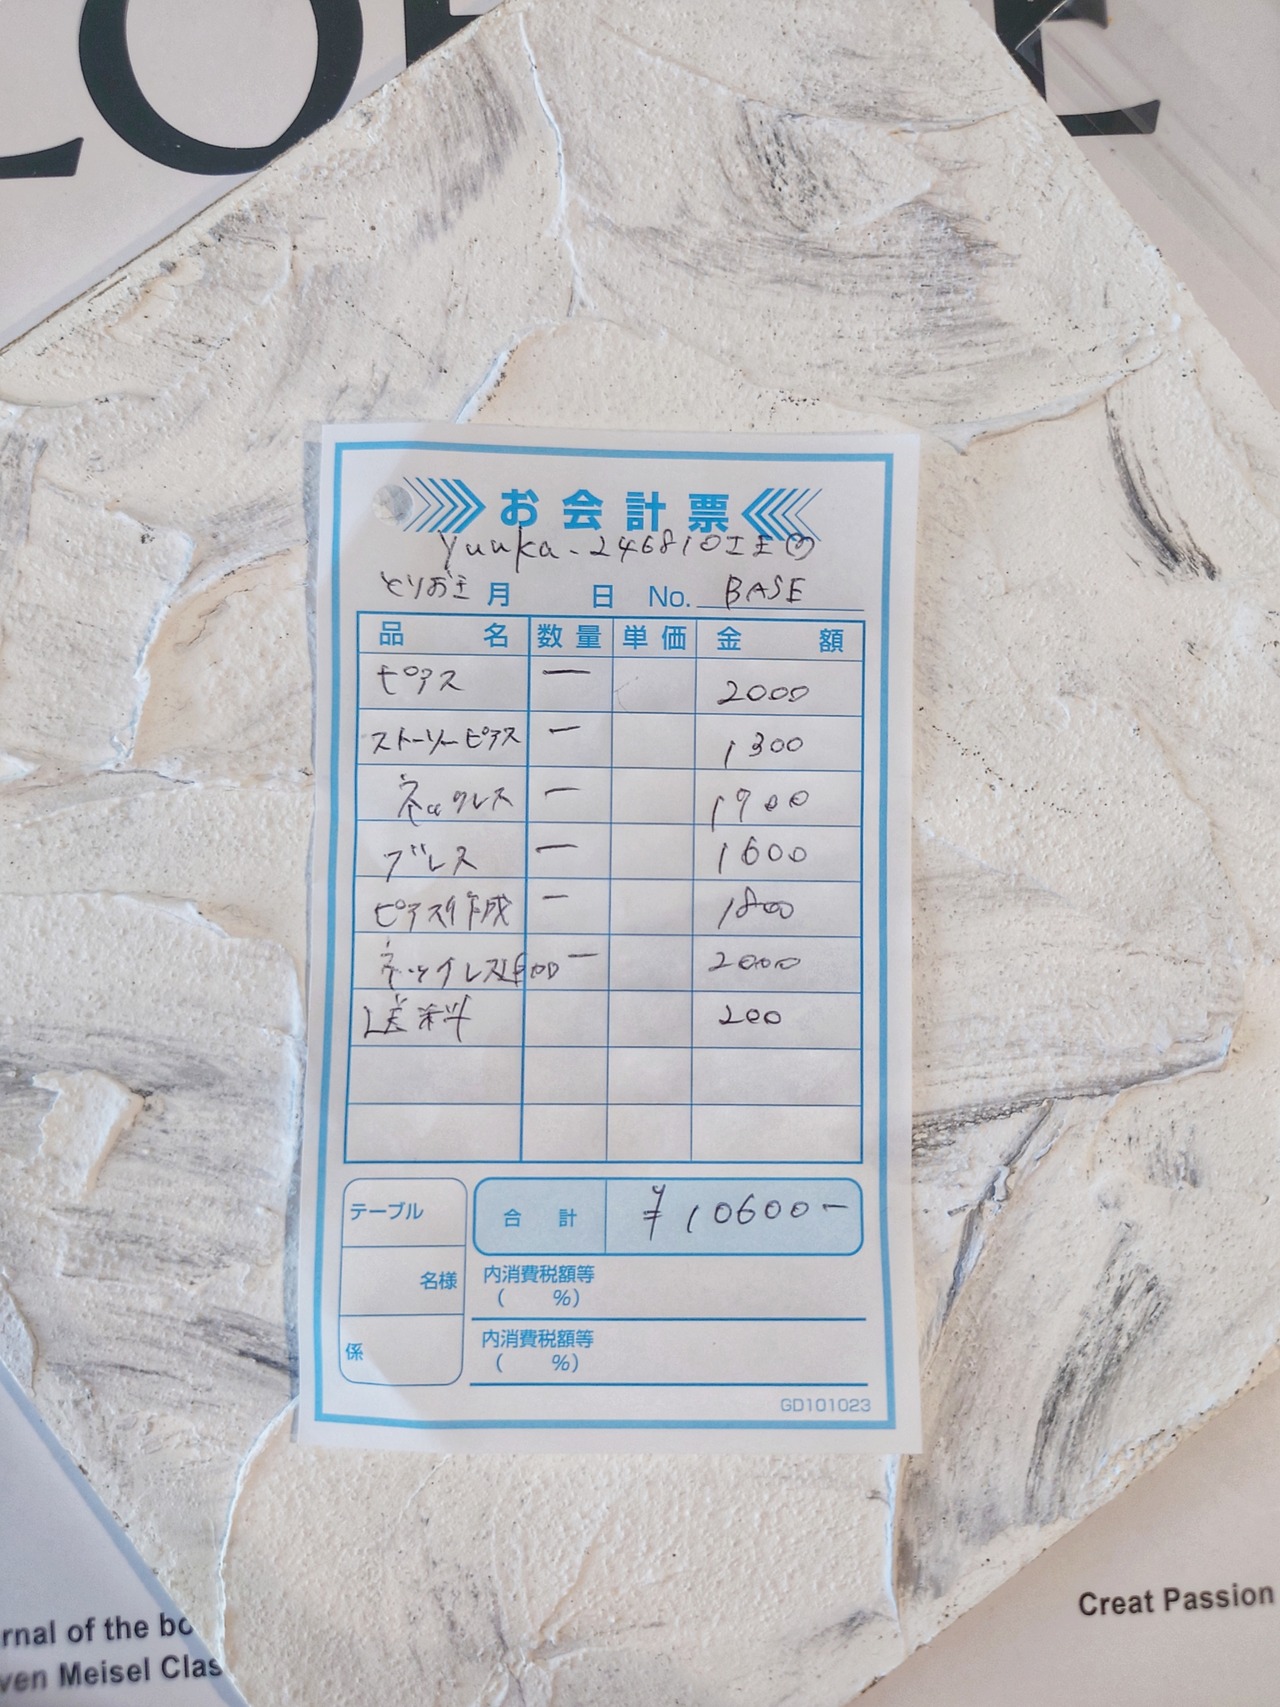 お会計票
yuuka.246810
とりおき 月 日 No. BASE
品名 数量 単価 金額
ピアス 一 2000
ストーリーピアス 一 1300
ネックレス 一 1700
ブレス 一 1600
ピアス作成 一 1800
ネックレス 一 2000
送料 200
合計 ¥10600-
テーブル
名様
係
内消費税額等
( %)
内消費税額等
( %)
GD101023
Creat Passion
rnal of the bo
ven Meisel Clas